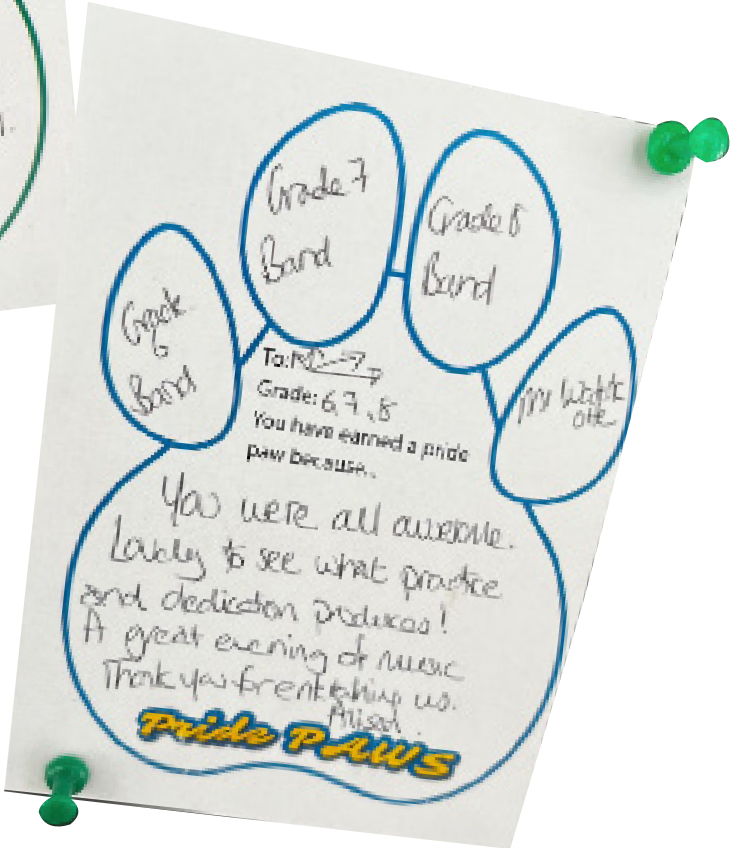 Grade 7
Band
Grade 8
Band
Grade
6
Band
Mr
To:
Grade: 6, 7, 8
You have earned a pride
paw because..
You were all awesome.
Lovely to see what practice
and dedication produces!
A great evening of music
Thank you for entertaining us.
Alison.
Pride PAWS